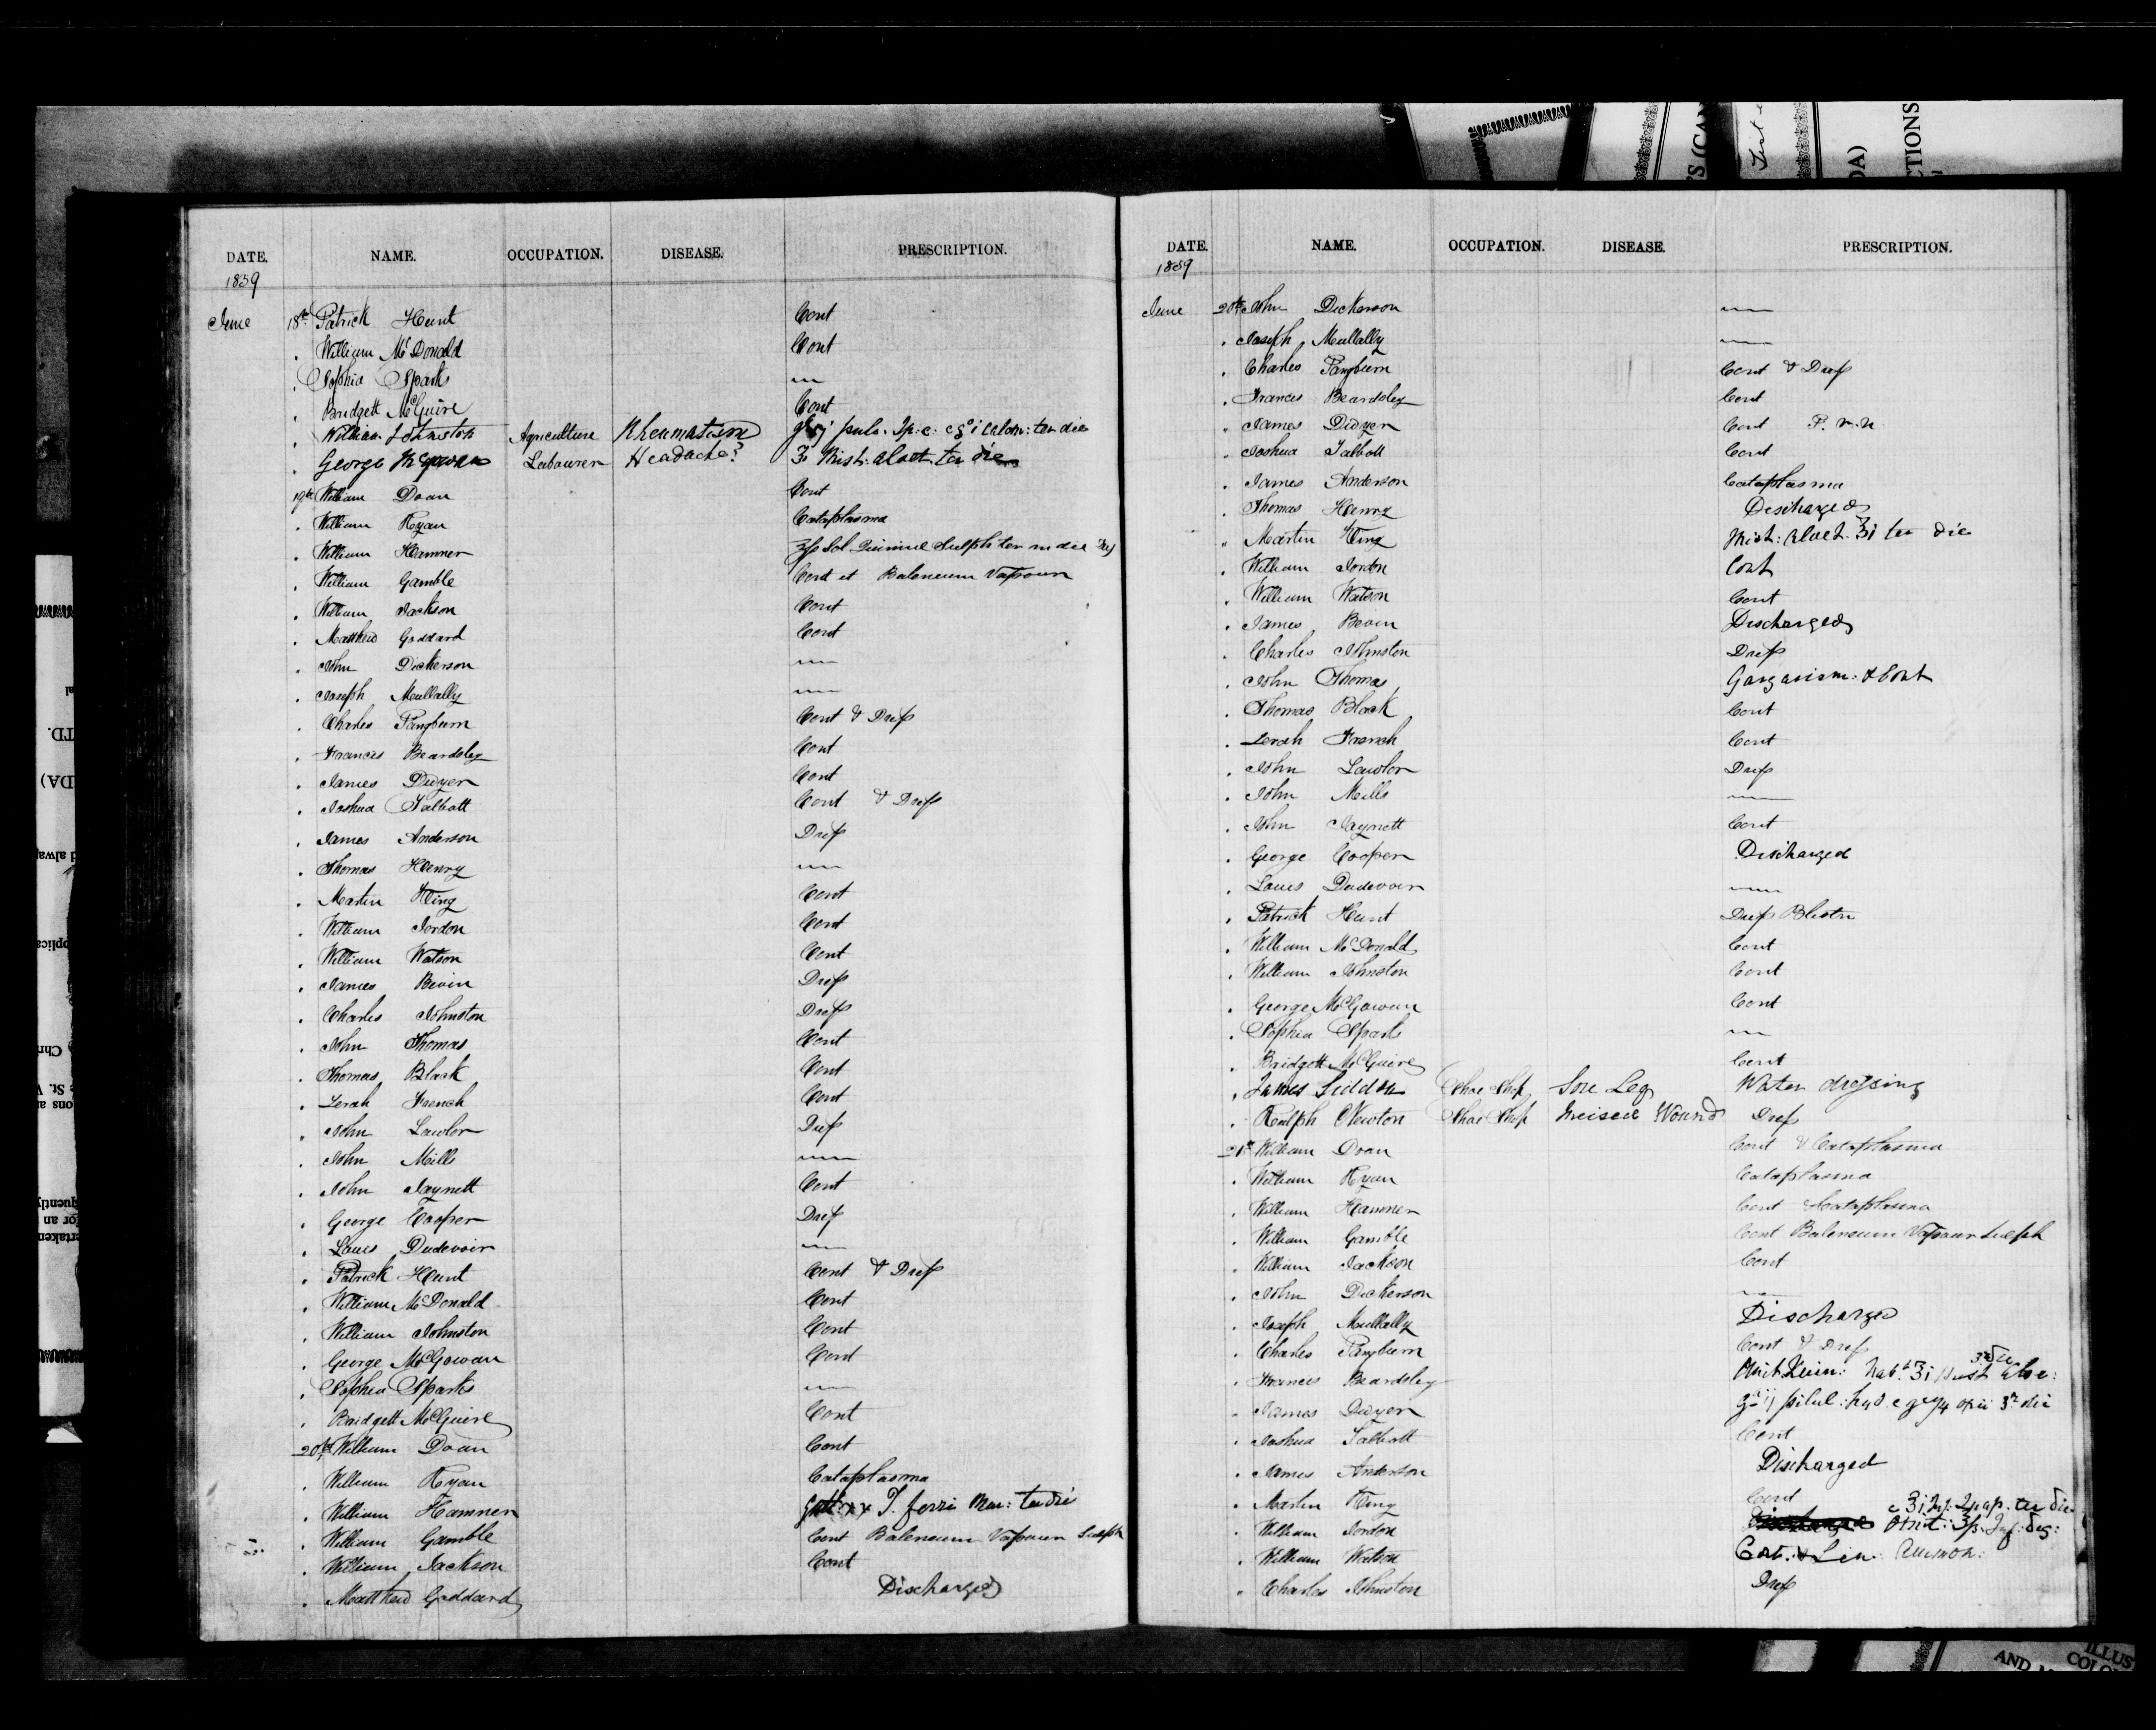 DATE. NAME. OCCUPATION. DISEASE. PRESCRIPTION.
1859
June 18th Patrick Hunt Cont
. William McDonald Cont
. Sophia Sparks
. Bridgett McGuire Cont
. William Johnston Agriculture Rheumatism pulv. Ip. c. ter die
. George McGowan Labourer Headache? Mist: aloet ter die
19th William Doan Cont
. William Ryan Cataplasma
. William Hamner Sol Quinine Sulph ter in die
. William Gamble Cont et Balneum Vapour
. William Jackson Cont
. Matthew Goddard Cont
. John Dickerson
. Joseph Mullally
. Charles Pangburn Cont & Dress
. Frances Beardsley Cont
. James Dwyer Cont
. Joshua Talbott Cont & Dress
. James Anderson Dress
. Thomas Henry
. Martin King Cont
. William Jordon Cont
. William Watson Cont
. James Bevin Dress
. Charles Johnston Dress
. John Thomas Cont
. Thomas Black Cont
. Zerah French Cont
. John Lawlor Dress
. John Mills
. John Jaynett Cont
. George Cooper Dress
. Louis Dudevoir
. Patrick Hunt Cont & Dress
. William McDonald Cont
. William Johnston Cont
. George McGowan Cont
. Sophia Sparks
. Bridgett McGuire Cont
20th William Doan Cont
. William Ryan Cataplasma
. William Hamner Gtt: xx T. ferri Mur: ter die
. William Gamble Cont Balneum Vapour Sulph
. William Jackson Cont
. Matthew Goddard Discharged
DATE. NAME. OCCUPATION. DISEASE. PRESCRIPTION.
1859
June 20th John Dickerson
. Joseph Mullally
. Charles Pangburn Cont & Dress
. Frances Beardsley Cont
. James Dwyer Cont P. r. n.
. Joshua Talbott Cont
. James Anderson Cataplasma
. Thomas Henry Discharged
" Martin King Mist: aloet. ʒi ter die
. William Jordon Cont
. William Watson Cont
. James Bevin Discharged
. Charles Johnston Dress
. John Thomas Gargarism: & Cont
. Thomas Black Cont
. Zerah French Cont
. John Lawlor Dress
. John Mills
. John Jaynett Cont
. George Cooper Discharged
. Louis Dudevoir
. Patrick Hunt Dress Blister
. William McDonald Cont
. William Johnston Cont
. George McGowan Cont
. Sophia Sparks
. Bridgett McGuire Cont
. James Siddon Shoe Shop Sore Leg Water dressing
. Ralph Newton Shoe Shop Incised Wound Dress
21st William Doan Cont & Cataplasma
. William Ryan Cataplasma
. William Hamner Cont & Cataplasma
. William Gamble Cont Balneum Vapour Sulph
. William Jackson Cont
. John Dickerson
. Joseph Mullally Discharged
. Charles Pangburn Cont & Dress
. Frances Beardsley
. James Dwyer pilul: hyd
. Joshua Talbott Cont
. James Anderson Discharged
. Martin King Cont
. William Jordon
. William Watson Cont. & Lin. Ammon:
" Charles Johnston Dress